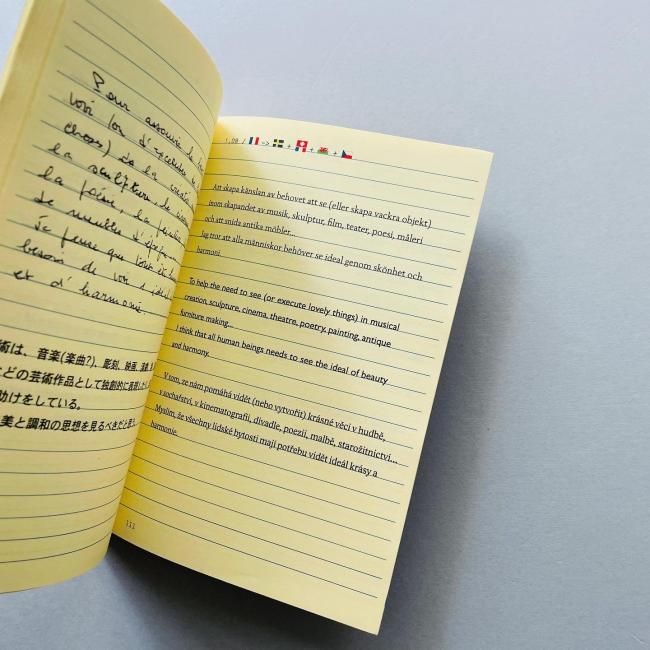 Pour assouvir le
voir (ou d'exécuter
choses) de la création
la sculpture, le
la poésie, la peinture
de meuble d'époque
Je pense que tout être
besoin de voir l'idéal
et d'harmonie.
術は、音楽(楽曲?)、彫刻、映画、演劇、
などの芸術作品として独創的に表現したい
助けをしている。
美と調和の思想を見るべきだと思う
Att skapa känslan av behovet att se (eller skapa vackra objekt)
inom skapandet av musik, skulptur, film, teater, poesi, måleri
och att snida antika möbler...
Jag tror att alla människor behöver se ideal genom skönhet och
harmoni.
To help the need to see (or execute lovely things) in musical
creation, sculpture, cinema, theatre, poetry, painting, antique
furniture making...
I think that all human beings needs to see the ideal of beauty
and harmony.
V tom, ze nám pomáhá vidět (nebo vytvořit) krásné věci v hudbě,
v sochařství, v kinematografii, divadle, poezii, malbě, starožitnictví...
Myslím, že všechny lidské bytosti mají potřebu vidět ideál krásy a
harmonie.
111